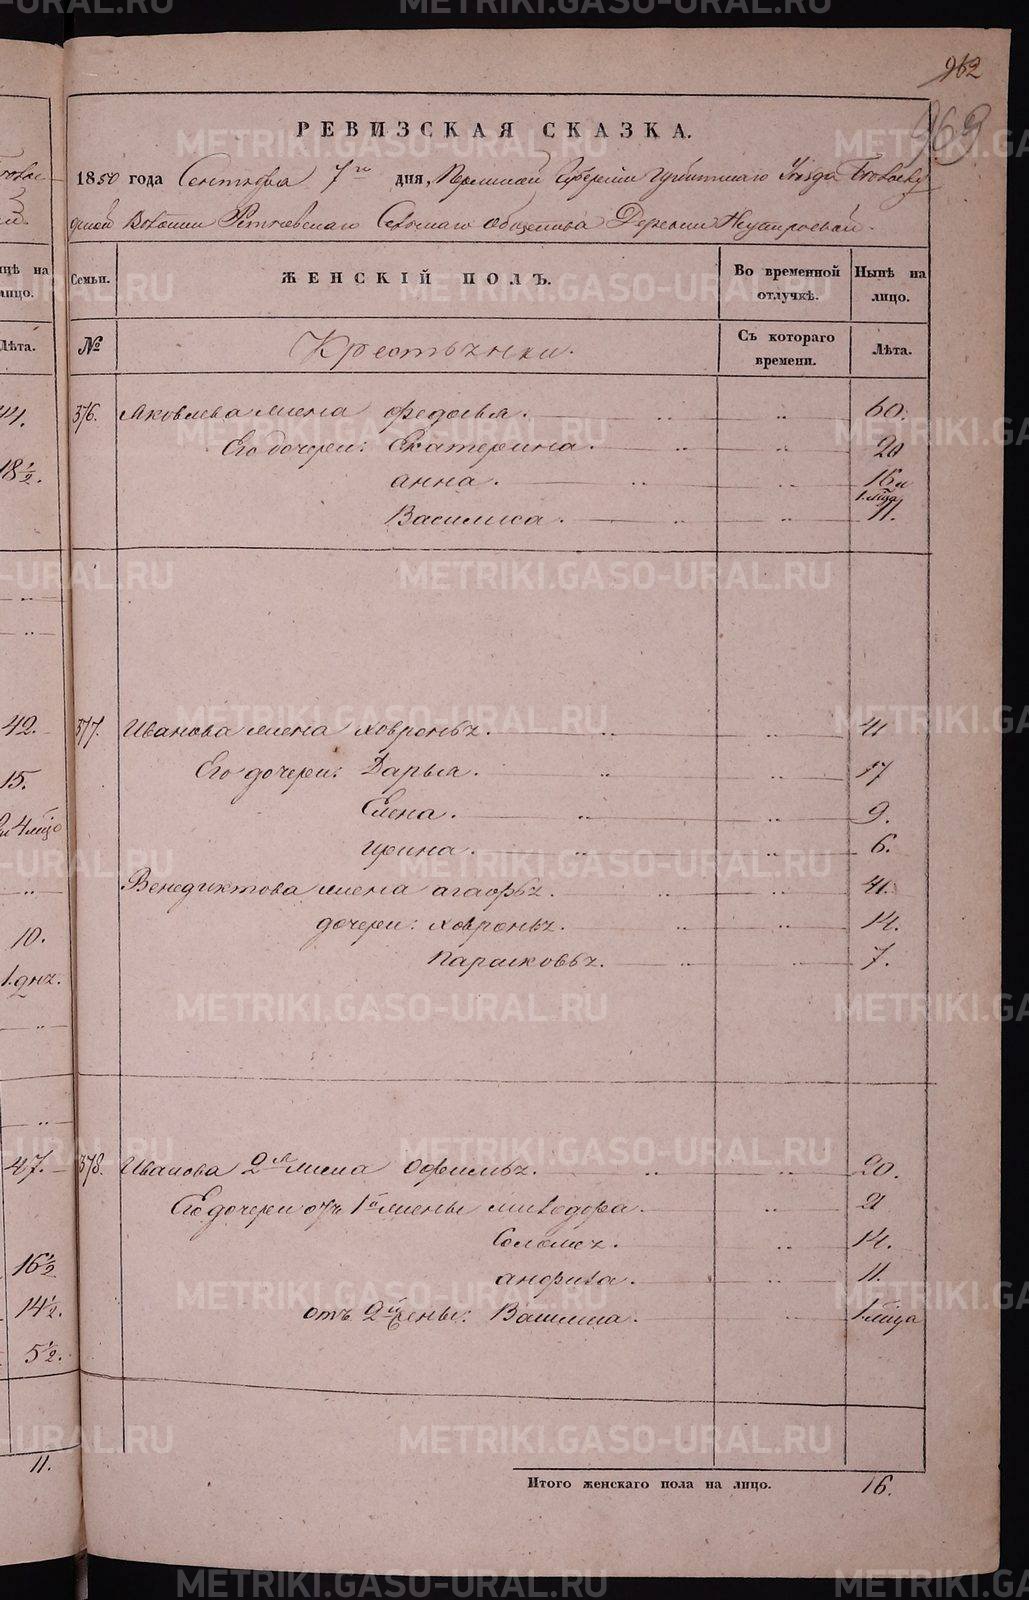 962
963
РЕВИЗСКАЯ СКАЗКА.
1850 года Сентября 7го дня, Пермской Губернии Ирбитскаго Уезда
Волости Сельскаго Общества Деревни
Семьи. ЖЕНСКІЙ ПОЛЪ. Во временной отлучкѣ. Нынѣ на лицо.
№ Крестьянки. Съ котораго времени. Лѣта.
376. Яковлева жена Федосья. 60.
Его дочери: Екатерина. 20
анна. 16 и 1. мѣца
Василиса. 11.
377. Иванова жена ховронья. 41
Его дочери: Дарья. 17
Елена. 9.
ирина. 6.
Венедиктова жена агафья. 41.
дочери: ховронья. 14.
Парасковья. 7.
378. Иванова 2я жена Офимья. 20.
Его дочери отъ 1й жены 21
Соломея. 14.
анфиса. 11.
отъ 2й жены: Василиса. 1. мѣца
Итого женскаго пола на лицо. 16.
ицѣ на
лицо.
Лѣта.
18½.
42.
15.
10.
47.
16½
14½.
5½.
11.
METRIKI.GASO-URAL.RU